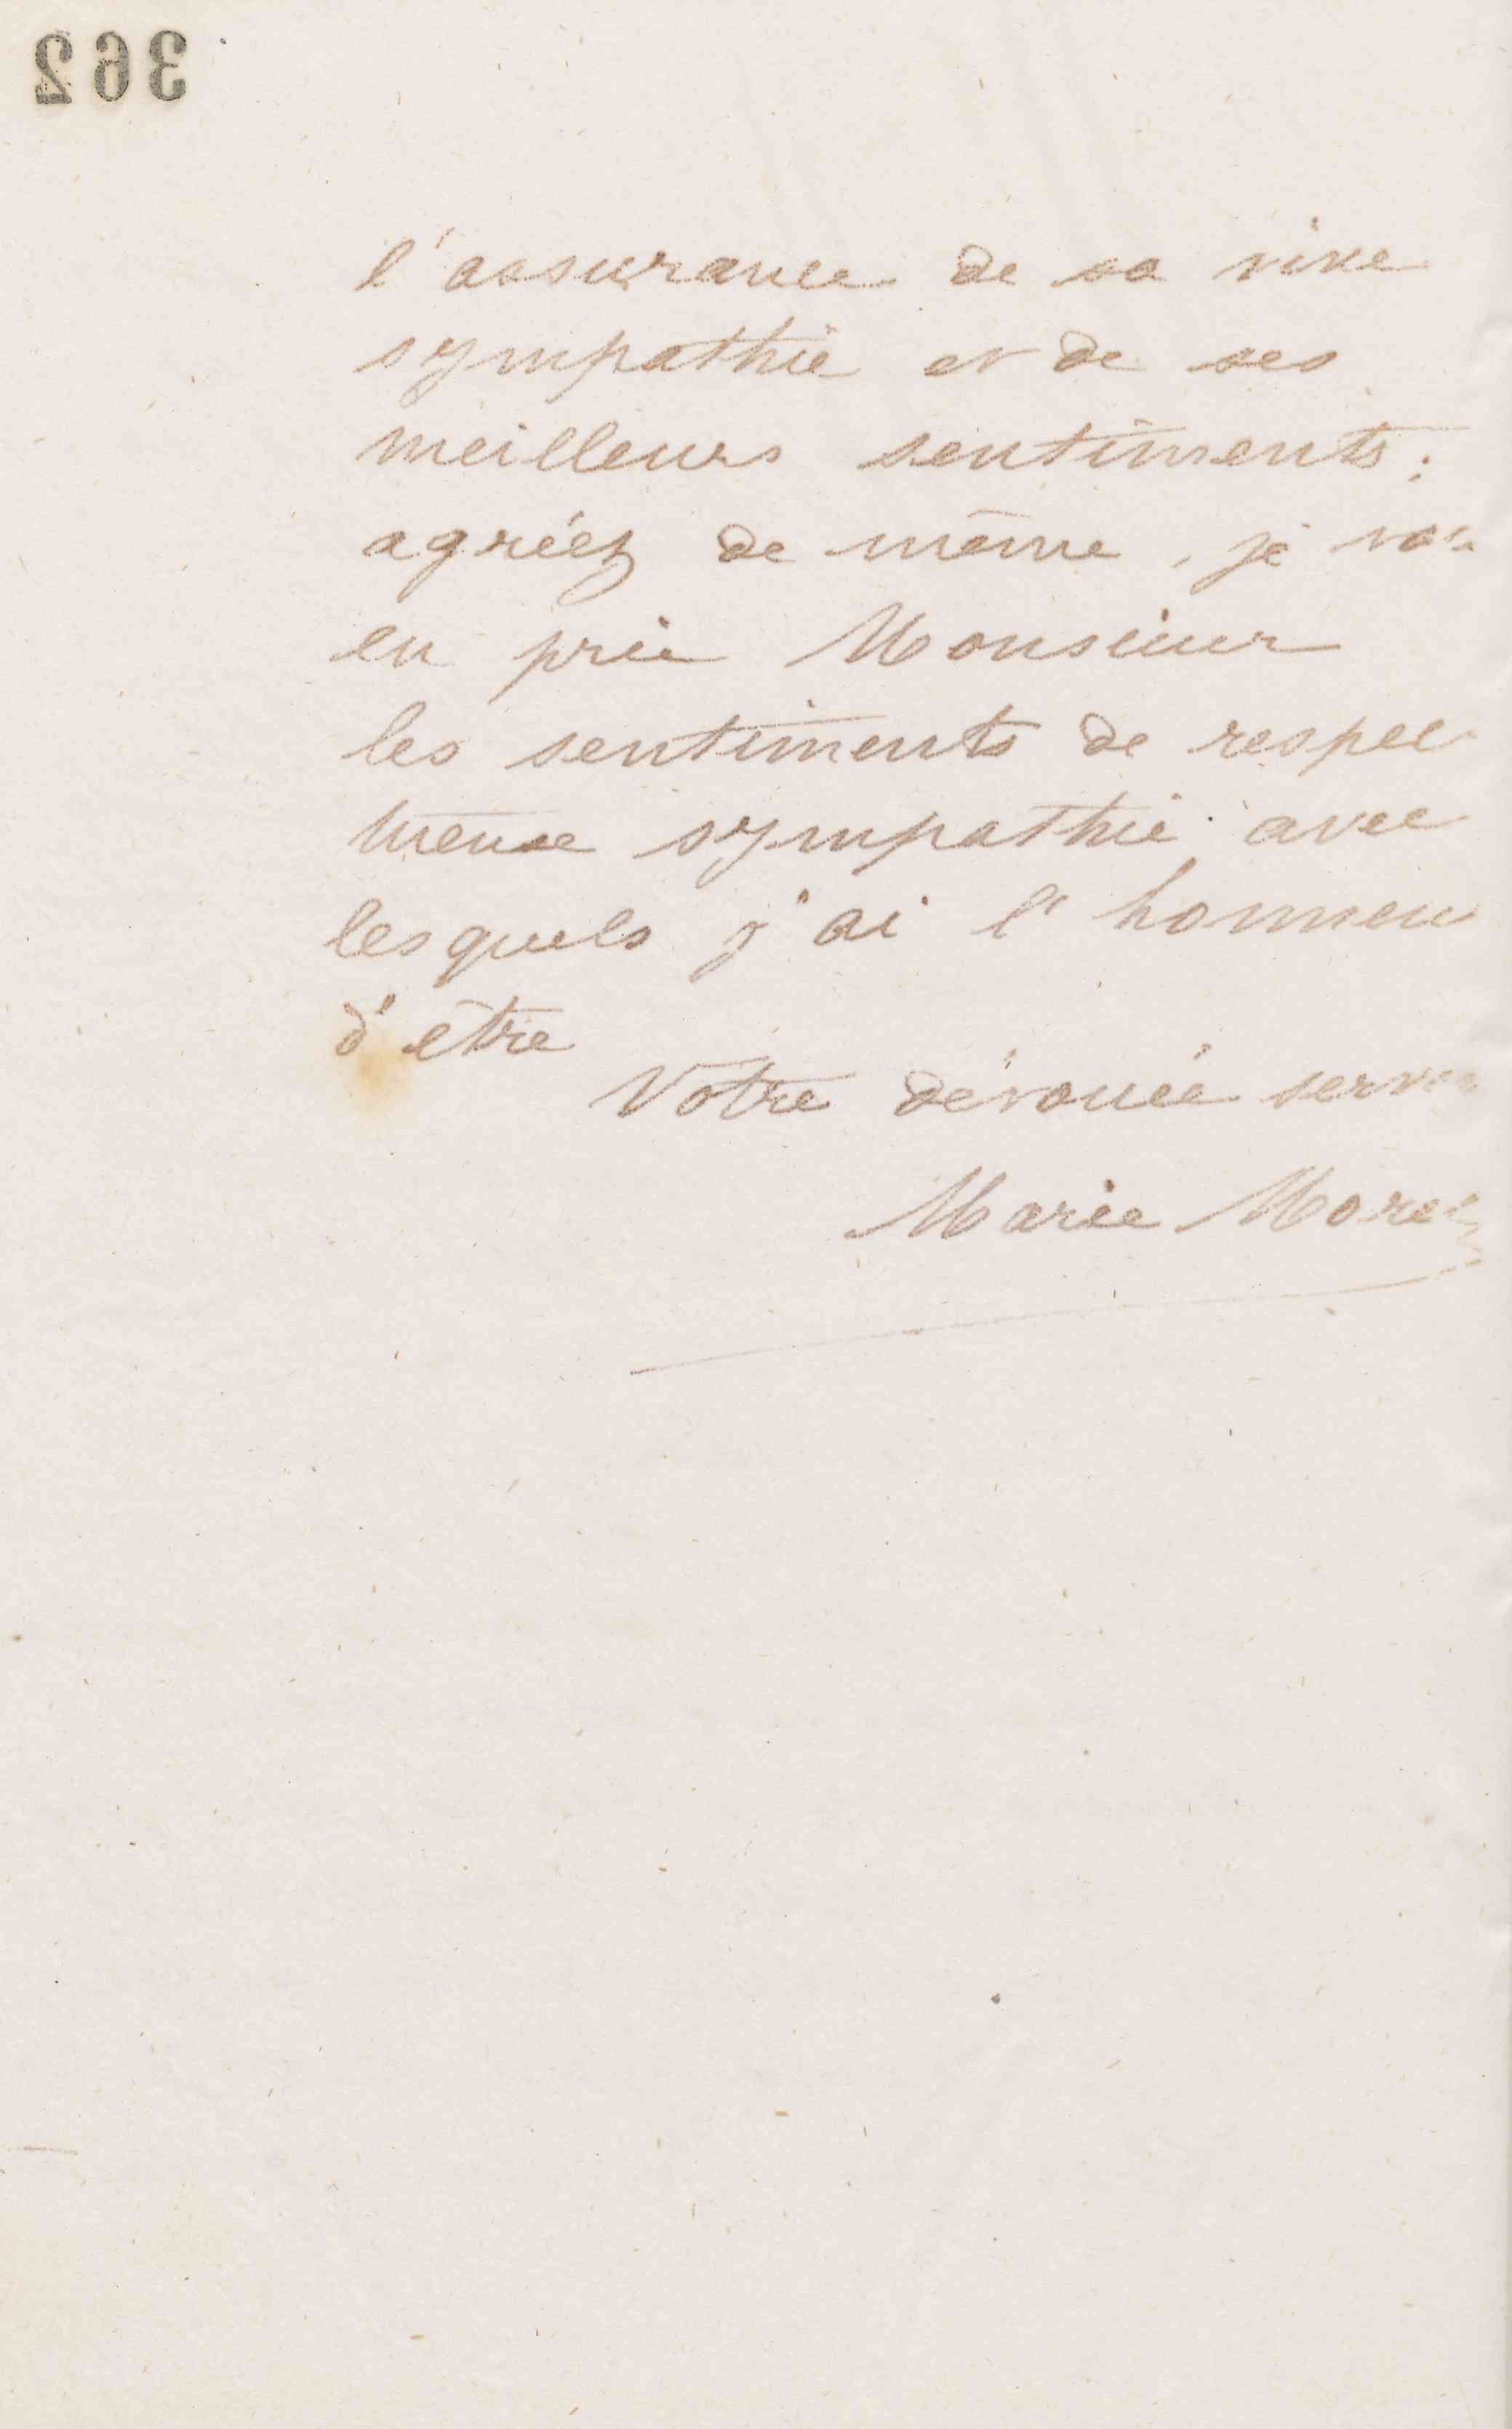 362
l'assurance de sa vive
sympathie et de ses
meilleurs sentiments;
agréez de même, je vous
en prie Monsieur
les sentiments de respec
tueuse sympathie avec
lesquels j'ai l'honneur
d'être
Votre dévouée
Marie Moret